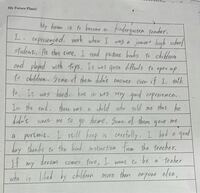 My Future Plans!
My dream is to become a kindergarten teacher.
I experienced work when I was a junior high school
students. At this time, I read picture books to children
and played with toys. It was quite difficult to open up
to children. Some of them didn't answer even if I talk
to. It was hard but it was very good experience.
In the end, there was a child who told me that he
didn't want me to go home. Some of them gave me
a presents. I still keep it carefully. I had a good
day thanks to the kind instruction from the teacher.
If my dream comes true, I want to be a teacher
who is liked by children more than anyone else.